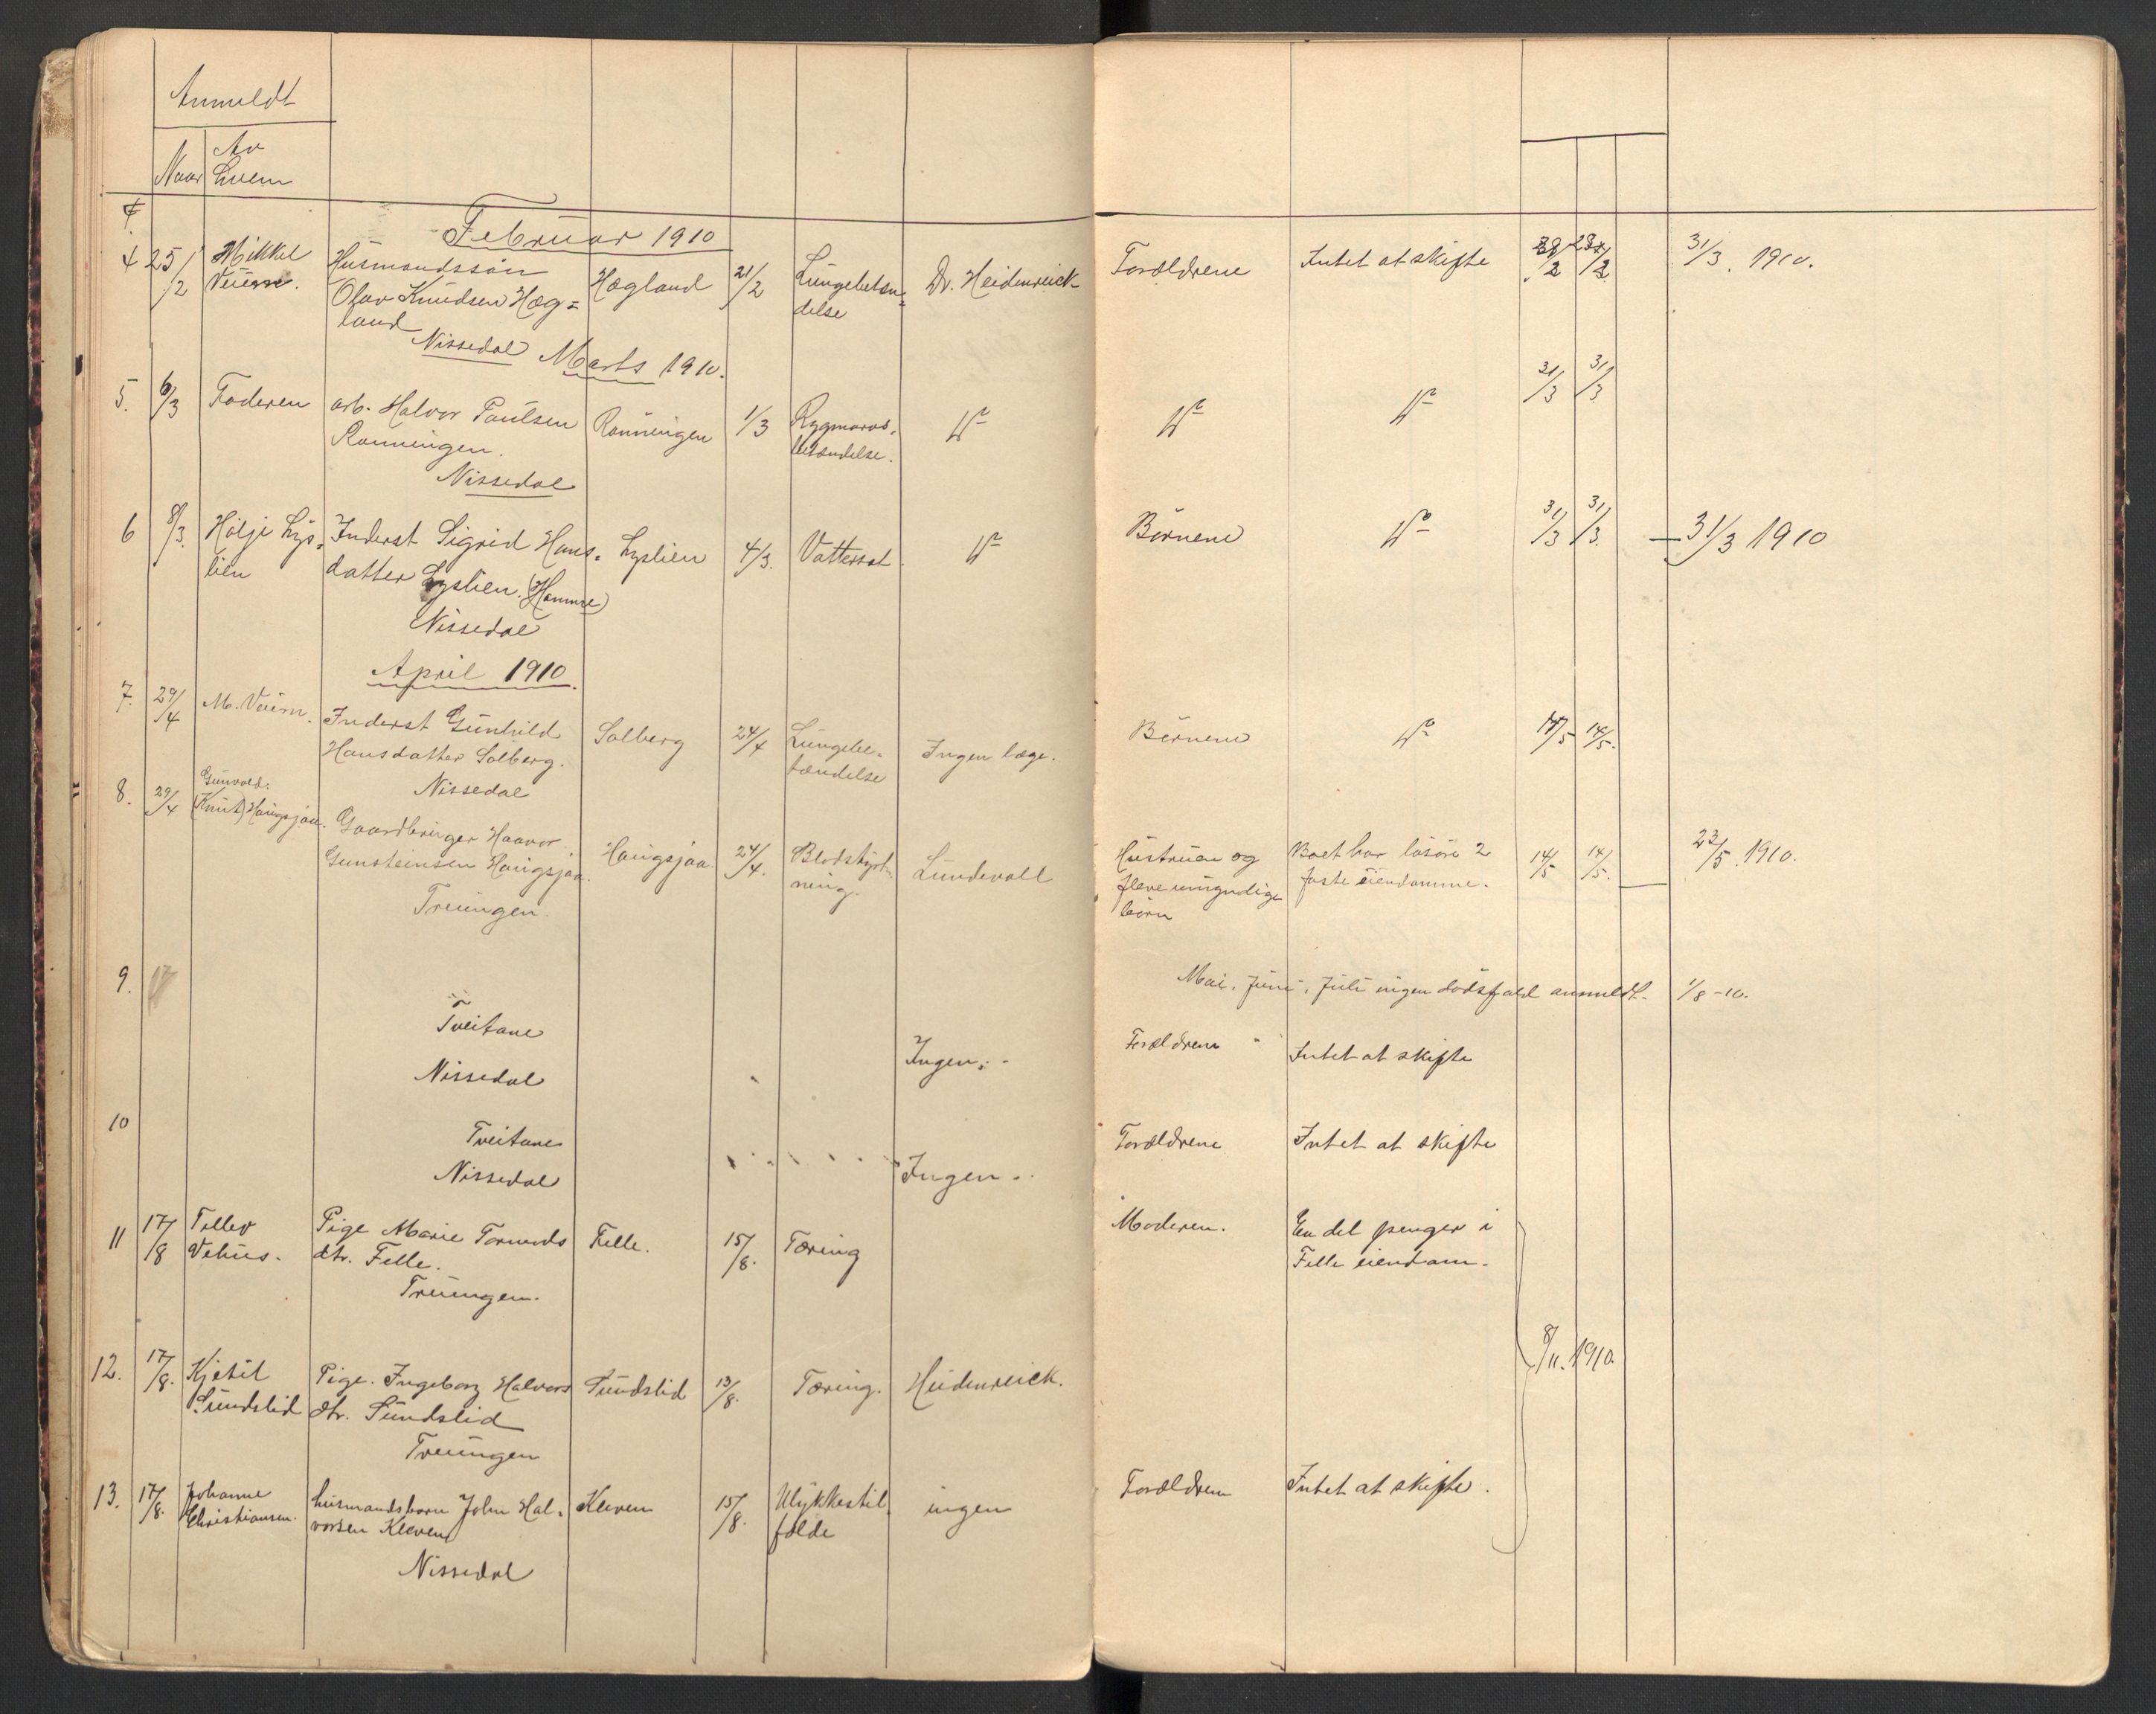 Anmeldt
Naar
Av
hvem
Februar 1910
4 25/2 Mikkel Husmandssön Hægland 21/2 Lungebetæn= Dr. Heidenreick Forældrene Intet at skifte 31/3. 1910.
Olav Knudsen Hæg= delse
land
Nissedal Marts 1910.
31/3 31/3
5. 6/3 Faderen arb. Halvor Paulsen Rönningen 1/3 Rygmarvs- Do Do Do
Rönningen. betændelse.
Nissedal
6 8/3. Hölje Lys= Inderst Sigrid Hans= Lyslien 4/3. Vattersot Do Börnene Do 31/3 31/3. 31/3 1910
lien datter Lyslien. (Hamre)
Nissedal
April 1910.
7. 29/4 Inderst Gunhild Solberg 24/4 Lungebe= Ingen læge. Börnene Do 14/5 14/5.
Hansdatter Solberg. tændelse
Nissedal
8. 29/4 Gunvald.
(Knut) Haugsjaa. Gaardbruger Haavor Haugsjaa. 24/4. Blodstyrt= Lundevall Hustruen og Boet har lösöre 2 14/5 14/5. 23/5. 1910.
Gunsteinsen Haugsjaa. ning. flere umyndige faste eiendomme.
Treungen. börn
9. 17
Mai, Juni, Juli ingen dödsfald anmeldt. 1/8-10.
Tveitane Forældrene Intet at skifte
Nissedal Ingen.
10 Tveitane Forældrene Intet at skifte
Nissedal Ingen.
11 17/8 Tellev Pige Marie Tormods Felle. 15/8. Tæring Moderen. En del penger i
Vehus. dtr. Felle. Felle eiendom.
Treungen.
8/11. 1910.
12. 17/8. Kjetil Pige. Ingeborg Halvors Sundslid 13/8. Tæring. Heidenreick.
Sundslid dtr. Sundslid
Treungen
13. 17/8. Johanne husmandsbarn John Hal= Kleven 15/8. Ulykkestil= ingen Forældrene Intet at skifte.
Christiansen. vorsen Kleven fælde
Nissedal